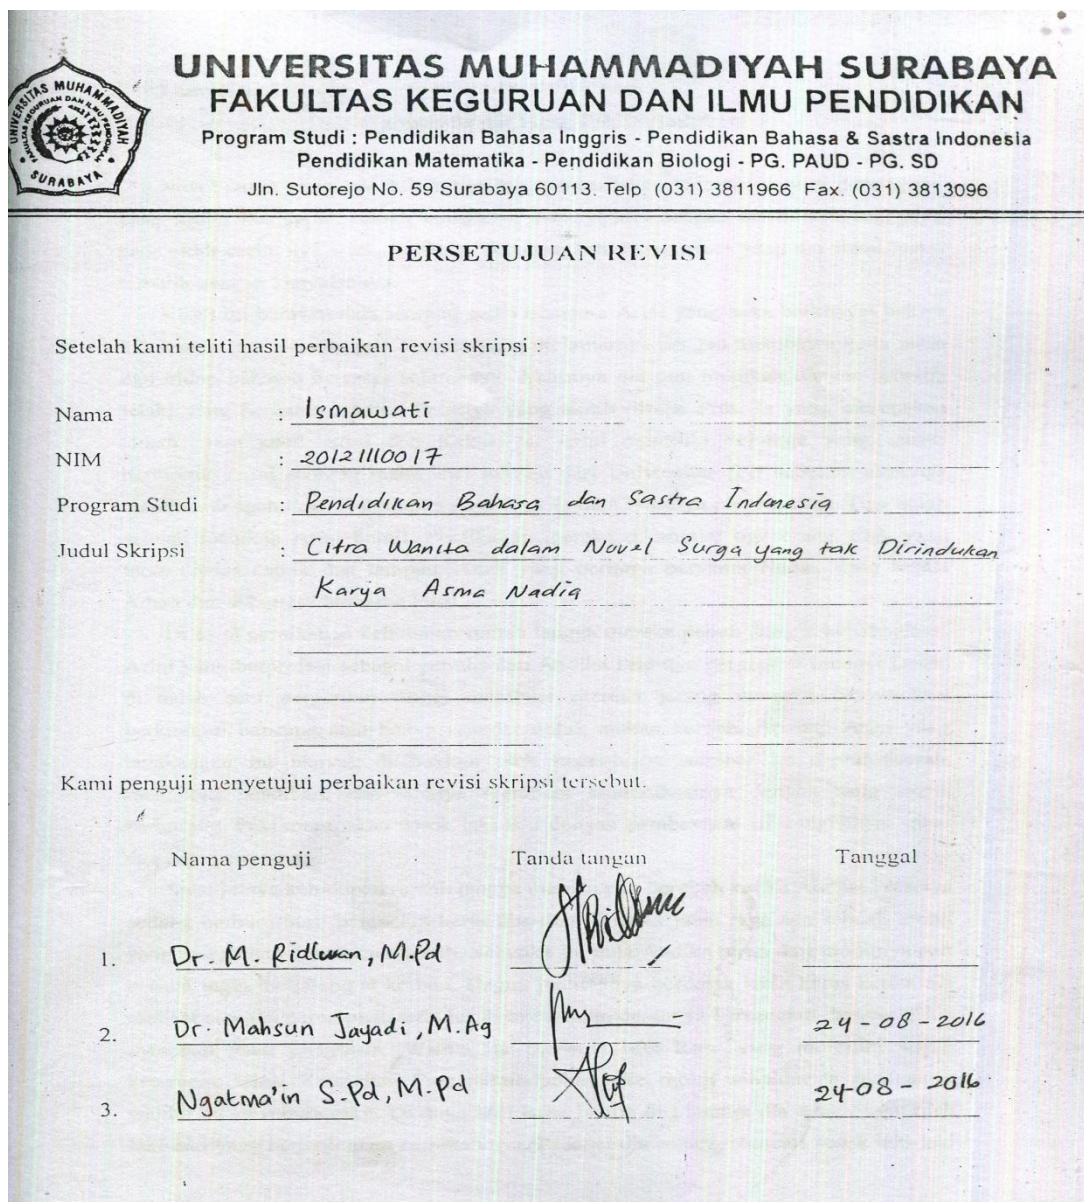 UNIVERSITAS MUHAMMADIYAH SURABAYA
FAKULTAS KEGURUAN DAN ILMU PENDIDIKAN
Program Studi : Pendidikan Bahasa Inggris - Pendidikan Bahasa & Sastra Indonesia
Pendidikan Matematika - Pendidikan Biologi - PG. PAUD - PG. SD
Jln. Sutorejo No. 59 Surabaya 60113. Telp. (031) 3811966 Fax. (031) 3813096
UNIVERSITAS MUHAMMADIYAH
FAKULTAS KEGURUAN DAN ILMU PENDIDIKAN
SURABAYA
PERSETUJUAN REVISI
Setelah kami teliti hasil perbaikan revisi skripsi :
Nama : Ismawati
NIM : 20121110017
Program Studi : Pendidikan Bahasa dan Sastra Indonesia
Judul Skripsi : Citra Wanita dalam Novel Surga yang tak Dirindukan
Karya Asma Nadia
Kami penguji menyetujui perbaikan revisi skripsi tersebut.
Nama penguji Tanda tangan Tanggal
1. Dr. M. Ridlwan, M.Pd
2. Dr. Mahsun Jayadi, M.Ag 24-08-2016
3. Ngatma'in S.Pd, M.Pd 24-08-2016